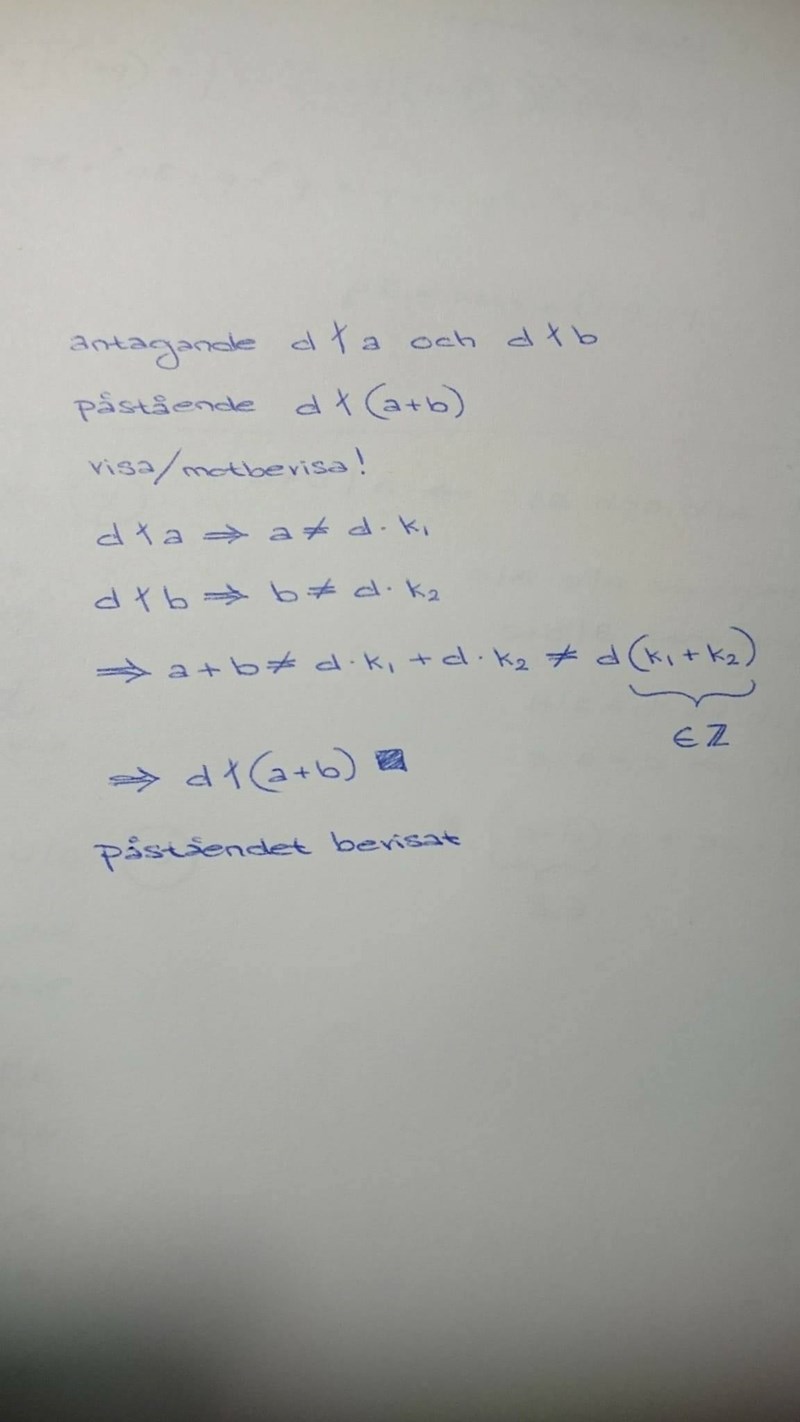 antagande d∤a och d∤b
påstående d∤(a+b)
visa/motbevisa!
d∤a ⇒ a ≠ d·k₁
d∤b ⇒ b ≠ d·k₂
⇒ a+b ≠ d·k₁ + d·k₂ ≠ d(k₁+k₂)
∈ℤ
⇒ d∤(a+b) ■
påståendet bevisat